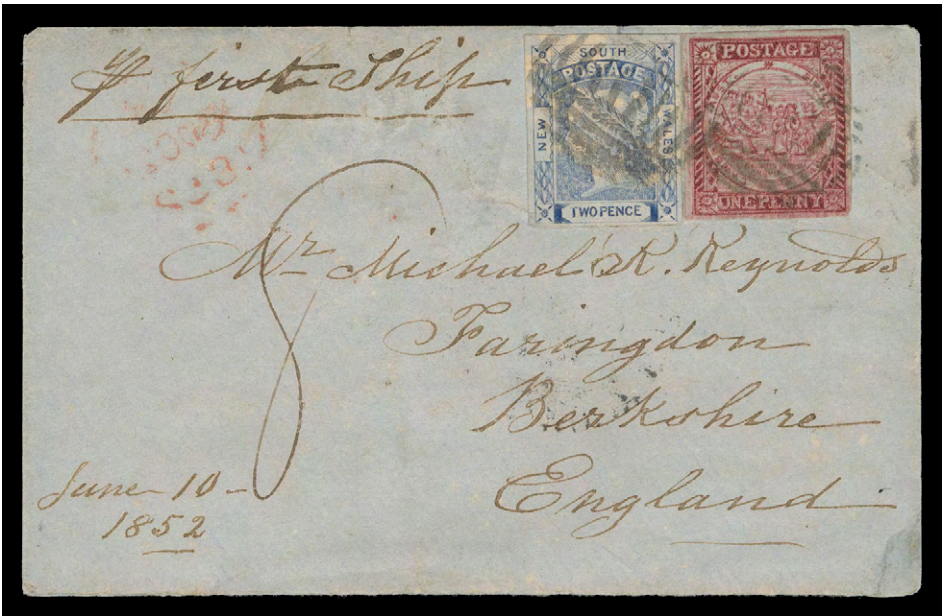 ℘ first Ship
SOUTH
POSTAGE
NEW
WALES
TWO PENCE
POSTAGE
ONE PENNY
Mr Michael R. Reynolds
Faringdon
Berkshire
England
8
June 10
1852